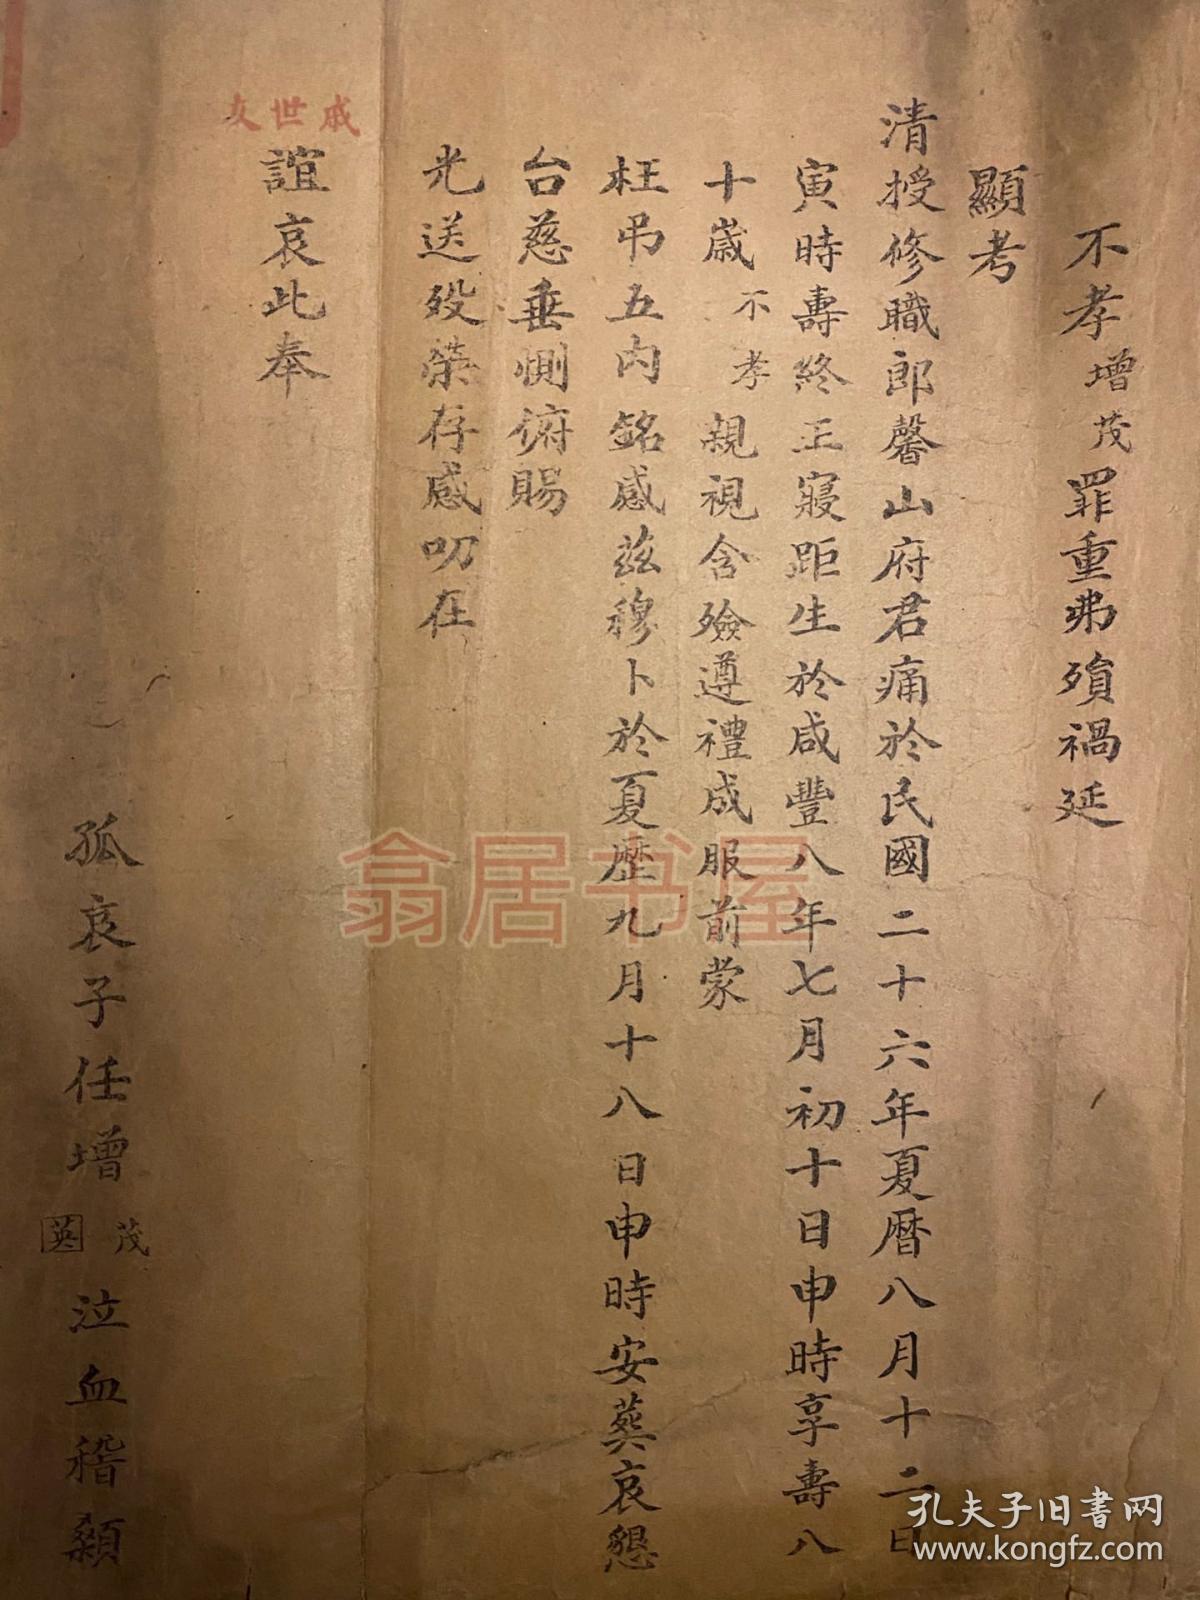 不孝增茂罪重弗殞禍延
顯考
清授修職郎馨山府君痛於民國二十六年夏曆八月十二日
寅時壽終正寢距生於咸豐八年七月初十日申時享壽八
十歲不孝親視含殮遵禮成服前蒙
枉弔五内銘感茲穆卜於夏歷九月十八日申時安葬哀懇
台慈垂惻俯賜
光送殁榮存感叨在
戚世友
誼哀此奉
孤哀子任增茂英泣血稽顙
翁居书屋
孔夫子旧书网
www.kongfz.com